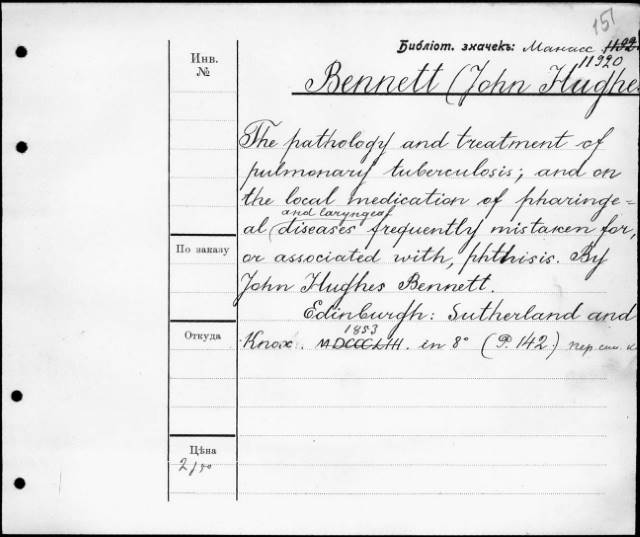 151
Библіот. значекъ: Манасс 1192
11920
Инв.
№
Bennett (John Hughes
The pathology and treatment of
pulmonary tuberculosis; and on
the local medication of pharinge=
and laryngeal
al diseases frequently mistaken for,
or associated with, phthisis. By
John Hughes Bennett.
Edinburgh: Sutherland and
1853
Knox. MDCCCLIII. in 8° (P. 142.) пер. син. к
По заказу
Откуда
Цѣна